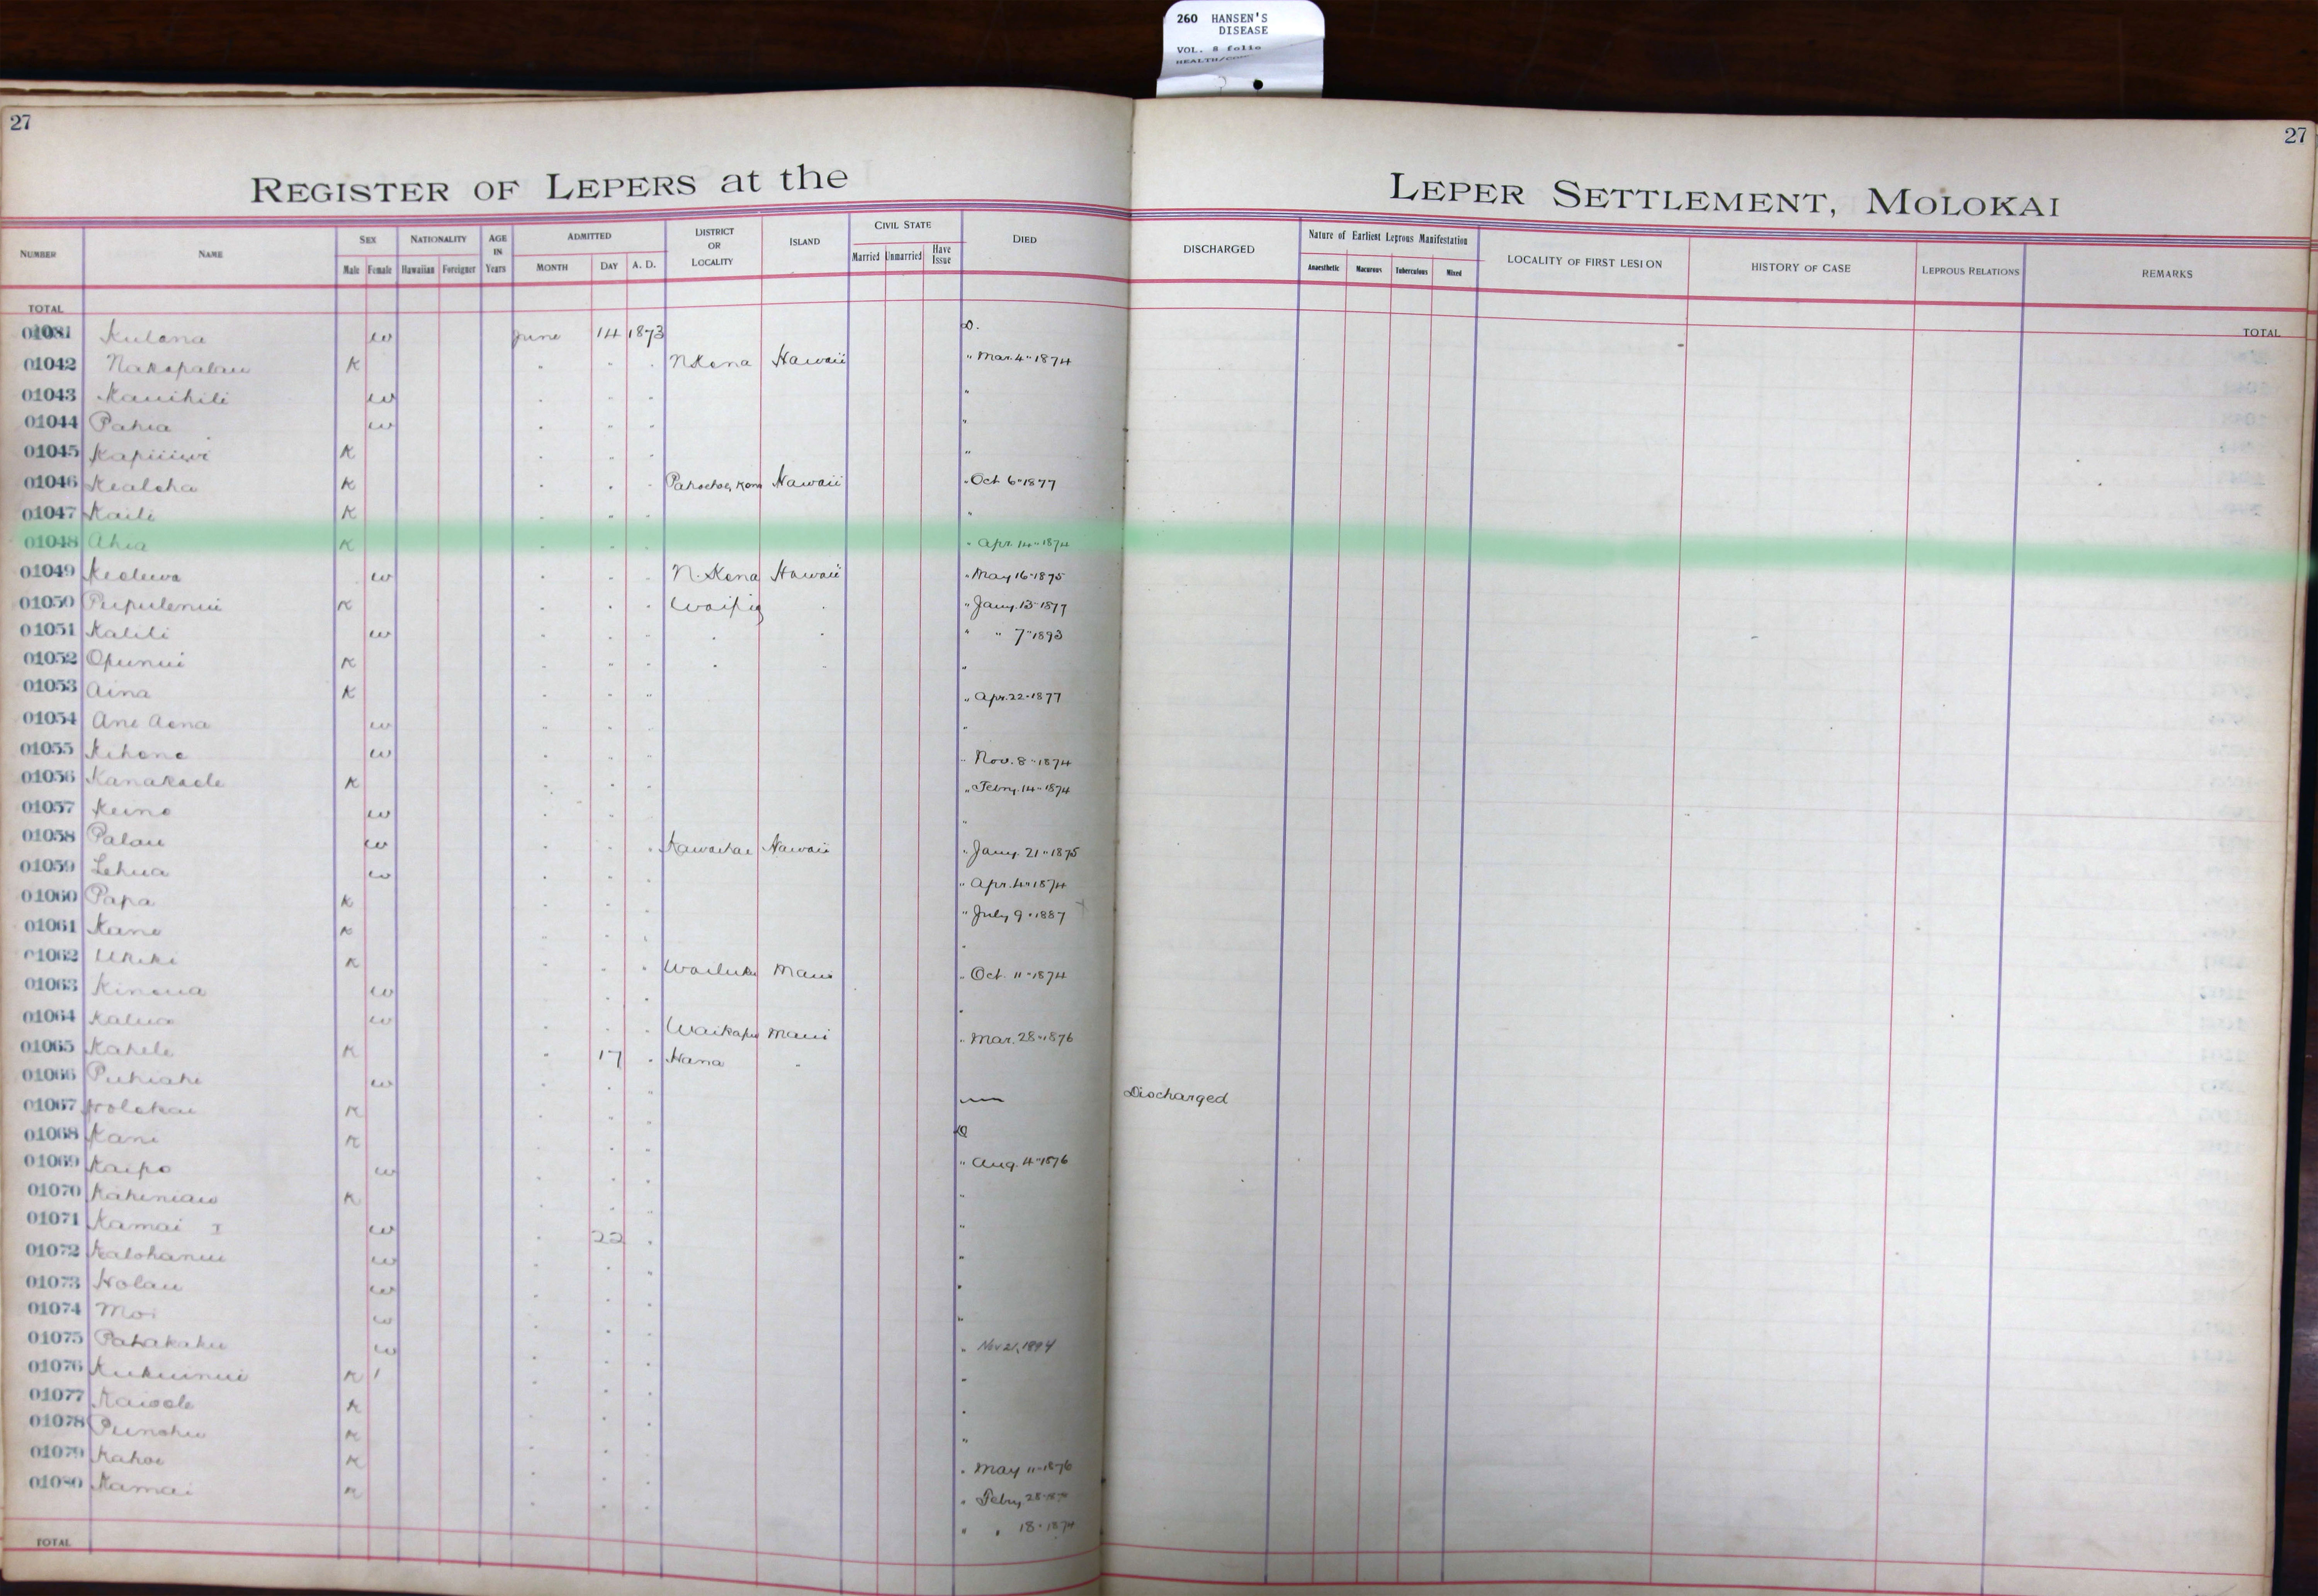 260 HANSEN'S
DISEASE
VOL. 8 folio
27
27
REGISTER OF LEPERS at the
LEPER SETTLEMENT, MOLOKAI
NUMBER NAME SEX Male Female NATIONALITY Hawaiian Foreigner AGE IN Years ADMITTED MONTH DAY A. D. DISTRICT OR LOCALITY ISLAND CIVIL STATE Married Unmarried Have Issue DIED DISCHARGED Nature of Earliest Leprous Manifestation Anaesthetic Macurous Tuberculous Mixed LOCALITY OF FIRST LESION HISTORY OF CASE LEPROUS RELATIONS REMARKS
TOTAL TOTAL
Kulana w June 14 1873 D.
01042 Nakapalau K " " " N Kona Hawaii " Mar. 4" 1874
01043 Kauihili w " " " "
01044 Pahia w " " " "
01045 K " " " "
01046 Kealoha K " " " Hawaii " Oct 6" 1877
01047 Kaili K " " " "
01048 Ahia K " " " " Apr. 14" 1874
01049 w " " " N. Kona Hawaii " May 16" 1875
01050 Pupulenui K " " " " Jany. 13" 1877
01051 Kalili w " " " " " " " 7" 1893
01052 Opunui K " " " " " "
01053 Aina K " " " " Apr. 22" 1877
01054 Ane Aona w " " " "
01055 Kihene w " " " " Nov. 8" 1874
01056 Kanakaole K " " " " Febry. 14" 1874
01057 Keino w " " " "
01058 Palau w " " " Kawaihae Hawaii " Jany. 21" 1875
01059 Lehua w " " " " Apr. 4" 1874
01060 Papa K " " " " July 9" 1887
01061 Kane K " " " "
01062 Ukeke K " " " Wailuku Maui " Oct. 11" 1874
01063 Kinoua w " " " "
01064 Kalua w " " " Waikapu Maui " Mar. 28" 1876
01065 Kahele K " 17 " Hana "
01066 Puhiahi w " " " Discharged
01067 Holokai K " " " D
01068 Kani K " " " " Aug. 4" 1876
01069 Kaipo w " " " "
01070 Kaheniau K " " " "
01071 Kamai I w " 22 " "
01072 Kalohanui w " " " "
01073 Holau w " " " "
01074 Moi w " " " " Nov 21, 1894
01075 Pahakahu w " " " "
01076 Kukuinui K " " " "
01077 Kaiaole K " " " "
01078 Punohu K " " " " May 11" 1876
01079 Kahoe K " " " " Febry 28"
01080 Kamai K " " " " " 18" 1874
TOTAL